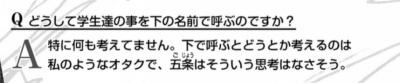 Q どうして学生達の事を下の名前で呼ぶのですか？
A 特に何も考えてません。下で呼ぶとどうとか考えるのは
私のようなオタクで、五条はそういう思考はなさそう。